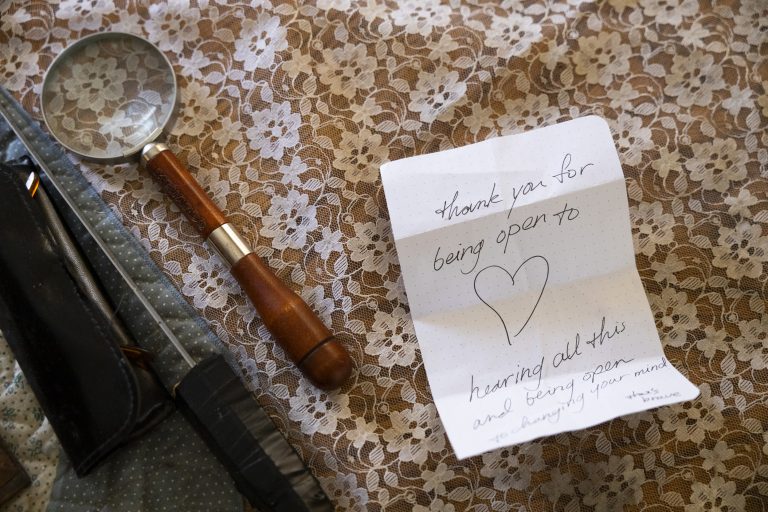 thank you for
being open to
hearing all this
and being open
to changing your mind
that's
brave